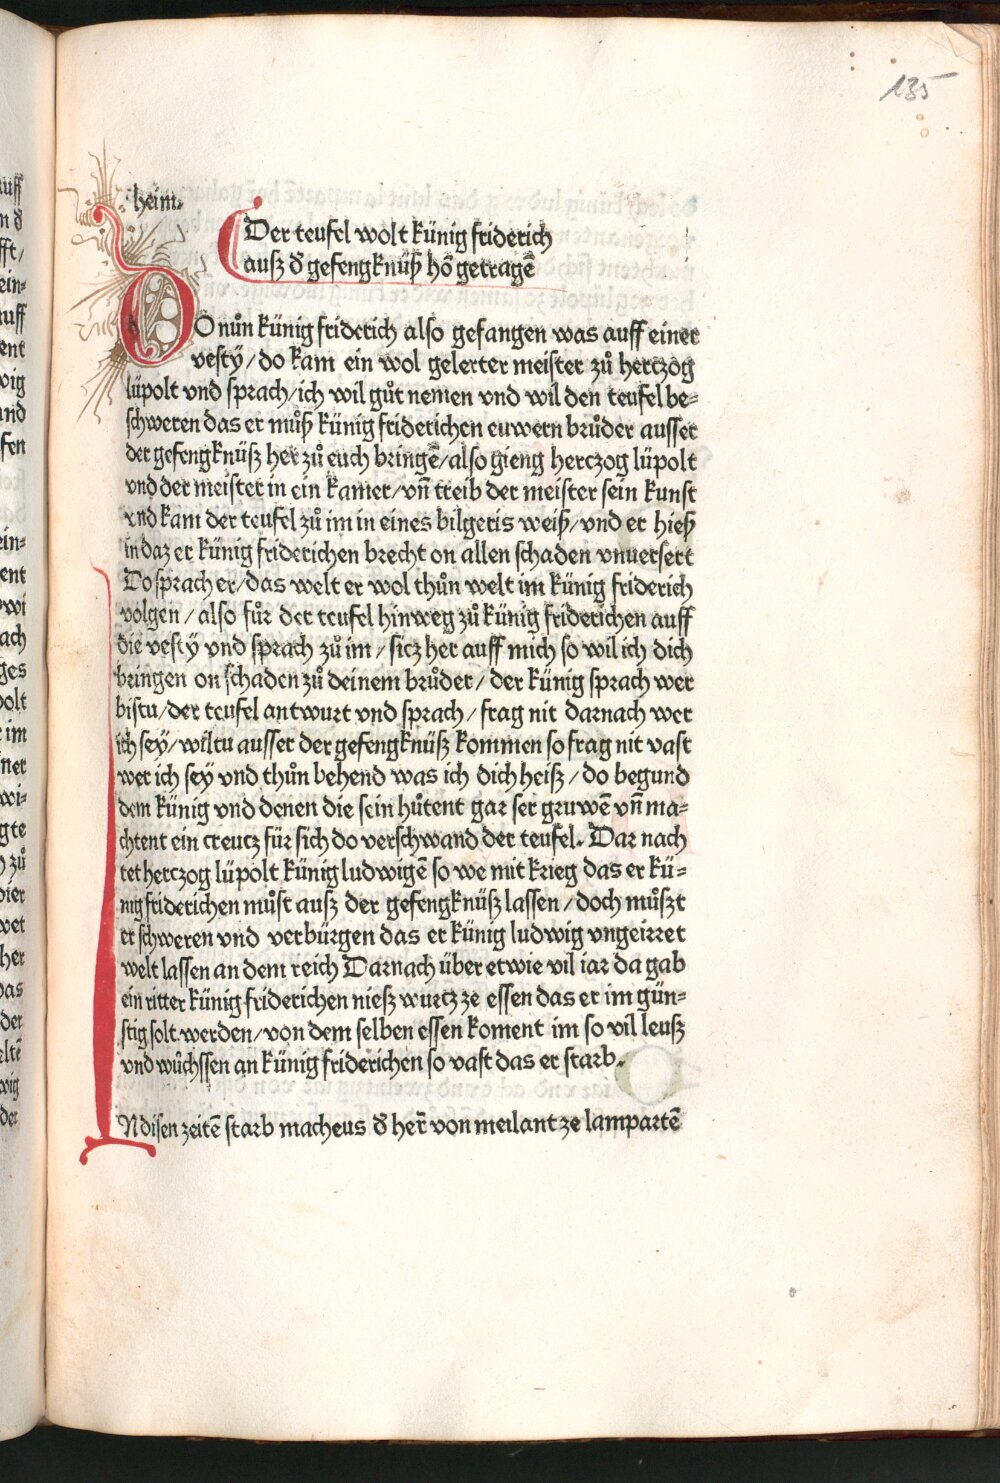 135
heim.
Der teufel wolt künig friderich
ausz d̕ gefengknüß hō getragē
DO nůn künig friderich also gefangen was auff einer
vestÿ/do kam ein wol gelerter meister zů hertzog
lüpolt vnd sprach/ich wil gůt nemen vnd wil den teufel be=
schweren das er můß künig friderichen euwern brůder ausser
der gefengknüsz her zů euch bringē/also gieng herczog lüpolt
vnd der meister in ein kamer/vn̄ treib der meister sein kunst
vnd kam der teufel zů im in eines bilgeris weiß/vnd er hieß
in daz er künig friderichen brecht on allen schaden vnuersert
Do sprach er/das welt er wol thůn welt im künig friderich
volgen/also fůr der teufel hinweg zů künig friderichen auff
die vestÿ vnd sprach zů im/sicz her auff mich so wil ich dich
bringen on schaden zů deinem brůder/der künig sprach wer
bistu/der teufel antwurt vnd sprach/frag nit darnach wer
ich seÿ/wiltu ausser der gefengknüsz kommen so frag nit vast
wer ich seÿ vnd thůn behend was ich dich heisz/do begund
dem künig vnd denen die sein hůtent gar ser gruwē vn̄ ma=
chtent ein creucz für sich do verschwand der teufel. Dar nach
tet herczog lüpolt künig ludwigē so we mit krieg das er kü=
nig friderichen můst ausz der gefengknüsz lassen/doch můszt
er schweren vnd verbürgen das er künig ludwig vngeirret
welt lassen an dem reich Darnach über etwie vil iar da gab
ein ritter künig friderichen niesz wurcz ze essen das er im gün=
stig solt werden/von dem selben essen koment im so vil leusz
vnd wůchssen an künig friderichen so vast das er starb.
IN disen zeitē starb macheus d̕ her̄ von meilant ze lampartē